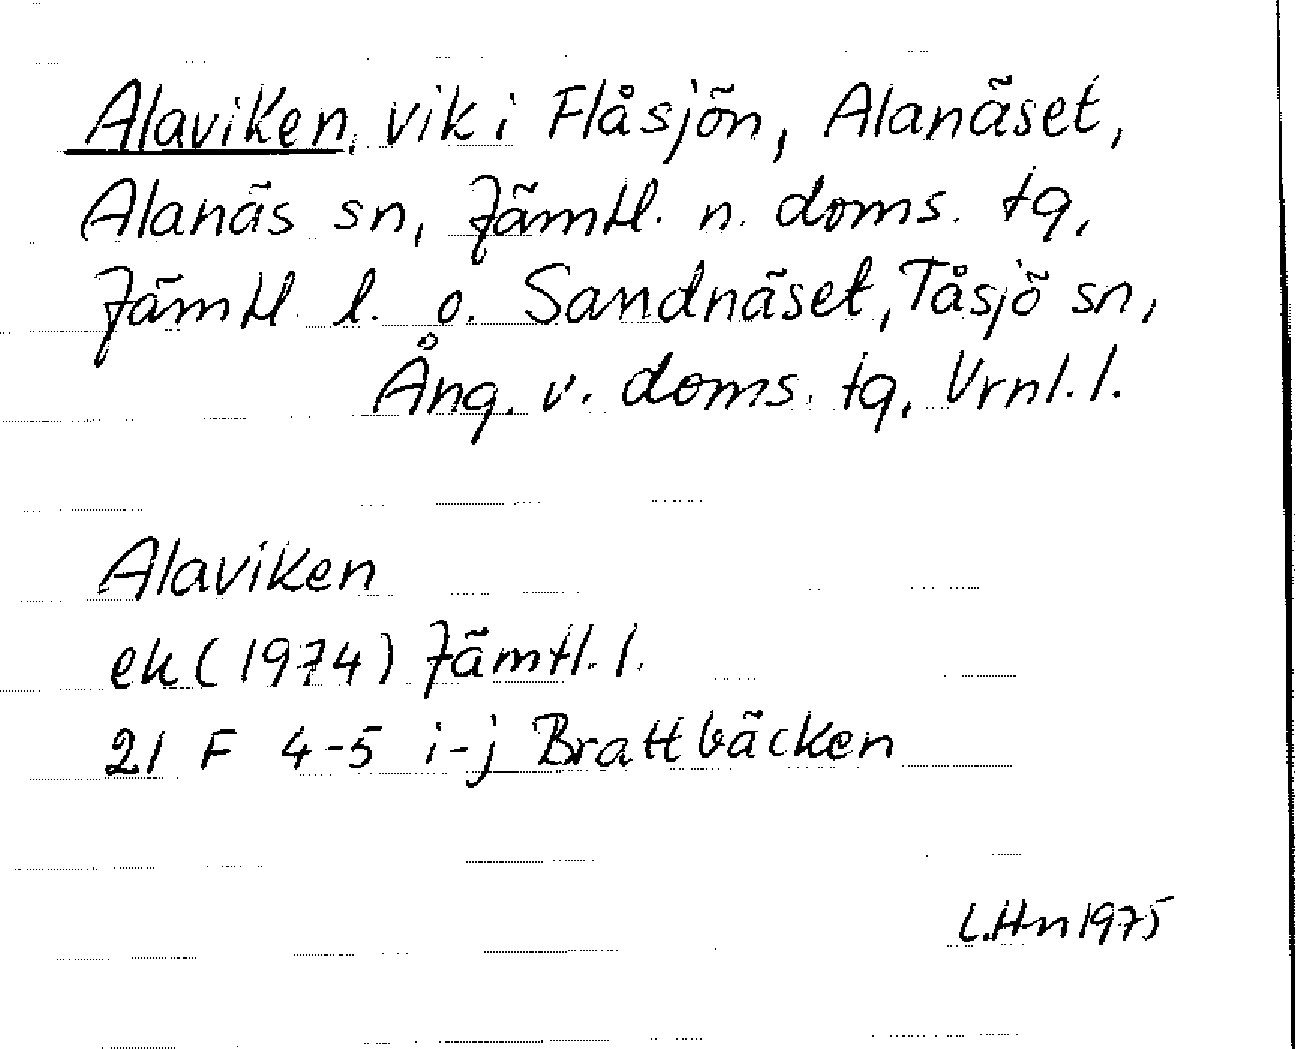 Alaviken, vik i Flåsjön, Alanäset,
Alanäs sn, Jämtl. n. doms. tg,
Jämtl l. o. Sandnäset, Tåsjö sn,
Ång. v. doms. tg, Vrnl. l.
Alaviken
ek (1974) Jämtl. l.
21 F 4-5 i-j Brattbäcken
L.Hn 1975